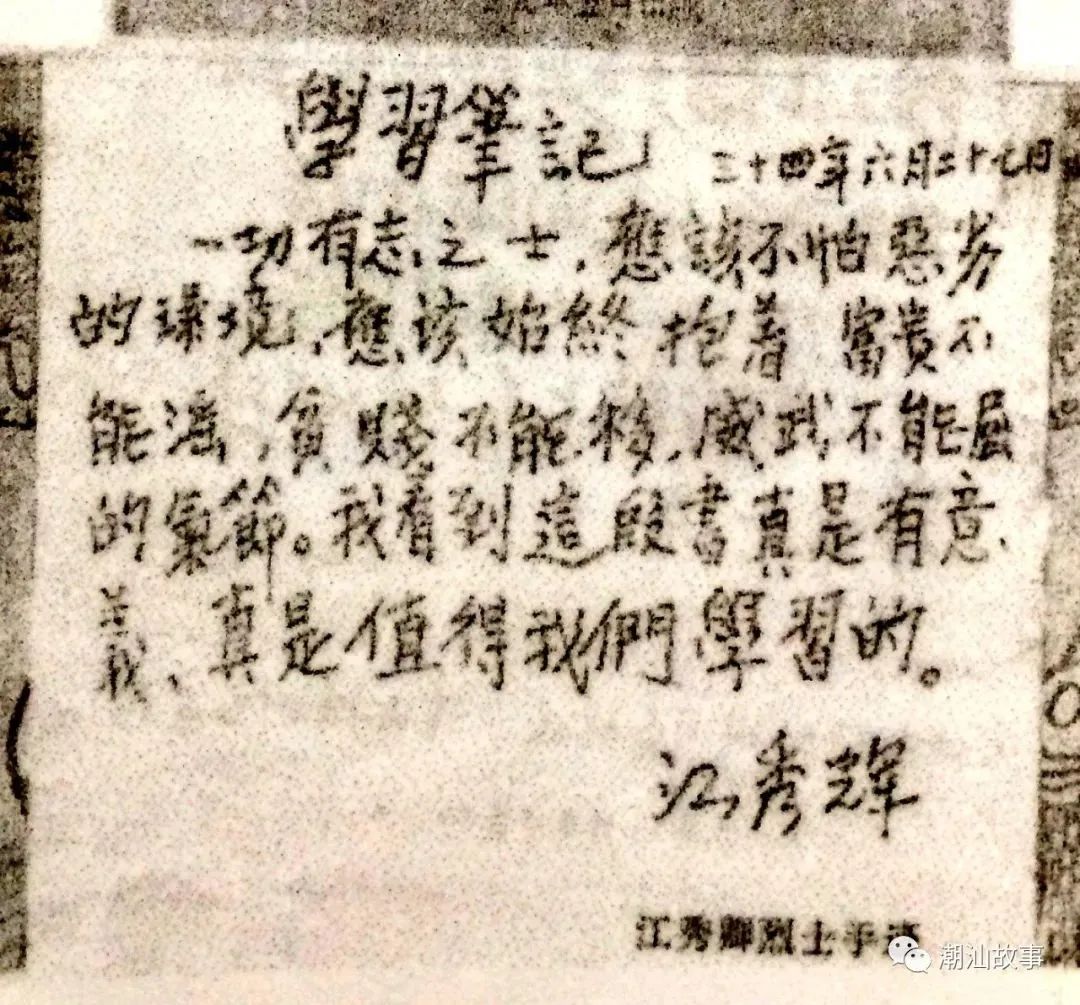 學習筆記
三十四年六月二十七日
一切有志之士，應該不怕惡劣
的環境，應该始終抱着富貴不
能淫，貧賤不能移，威武不能屈
的氣節。我看到這段書真是有意
義，真是值得我們學習的。
江秀輝
江秀卿烈士手迹
潮汕故事